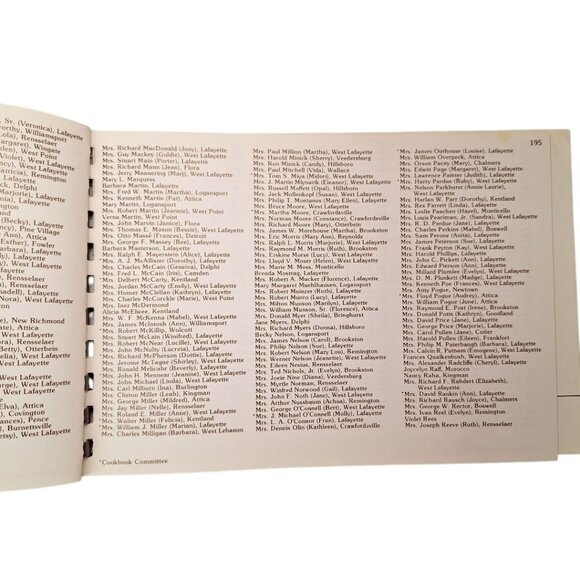 Sr. (Veronica), Lafayette
Williamsport
Lafayette
Wingate
West Lafayette
Remington
Delphi
Pine Village
Attica
Ester), Fowler
Lafayette
Rensselaer
Lafayette
West Lafayette
New Richmond
Attica
Covington
Pence
Burnettsville
West Lafayette
195
Mrs. Richard MacDonald (Joey), Lafayette
Mrs. Guy Mackey (Goldie), West Lafayette
Mrs. Stuart Main (Porter), Lafayette
Mrs. Richard Mann (Jean), Flora
Mrs. Jerry Mannering (Marj), West Lafayette
Mary L. Marquess
Barbara Martin, Lafayette
Mrs. Fred W. Martin (Martha), Logansport
Mrs. Kenneth Martin (Pat), Attica
Mary Martin, Logansport
Mrs. Robert Martin (Jeannie), West Point
Verna Martin, West Point
Mrs. John Marvin (Janice), Flora
Mrs. Thomas E. Mason (Bessie), West Lafayette
Mrs. Otto Masse (Frances), Detroit
Barbara Masterson, Lafayette
Mrs. George F. Massey (Bee), Lafayette
Mrs. Ralph E. Mayerstein (Alice), Lafayette
Mrs. A. J. McAlbert (Dorothy), Lafayette
Mrs. Charles McCain (Geneva), Delphi
Mrs. Fred L. McCain (Iris), Camden
Mrs. Delbert McCarty, Kentland
Mrs. Jordan McCarty (Emily), West Lafayette
Mrs. Homer McClellan (Kathryn), Kentland
Mrs. Charles McCorckle (Marie), West Point
Mrs. Inez McDermond
Alicia McElwee, Kentland
Mrs. W. F. McKenna (Mabel), West Lafayette
Mrs. James McIntosh (Ann), Williamsport
Mrs. Robert McKillip, Wolcott
Mrs. Stuart McLain (Winifred), Lafayette
Mrs. Robert McNear (Lucille), West Lafayette
Mrs. John McNulty (Lucreta), Lafayette
Mrs. Richard McPherson (Dottie), Lafayette
Mrs. Jerome McTague (Shirley), Lafayette
Mrs. Ronald Melichar (Beverly), Lafayette
Mrs. John H. Mennner (Jeannie), West Lafayette
Mrs. John Michael (Linda), West Lafayette
Mrs. Carl Milburn (Ina), Burlington
Mrs. Clinton Miller (Leah), Kingman
Mrs. George Miller (Mildred), Attica
Mrs. Jay Miller (Nelle), Rensselaer
Mrs. Roland E. Miller (Anne), West Lafayette
*Mrs. Walter Miller (Felicia), Kentland
*Mrs. William J. Miller (Marian), Lafayette
Mrs. Charles Milligan (Barbara), West Lebanon
Mrs. Paul Million (Martha), West Lafayette
Mrs. Harold Minick (Sherry), Veedersburg
Mrs. Ron Minick (Candy), Hillsboro
Mrs. Paul Mitchell (Vida), Wallace
Mrs. Tom S. Miya (Midori), West Lafayette
Mrs. J. Martin Mlynarik (Eleanor), West Lafayette
Mrs. Russell Moffett (Opal), Hillsboro
Mrs. Jack Mollenkopf (Susan), West Lafayette
Mrs. Philip T. Montanus (Mary Ellen), Lafayette
Mrs. Bruce Moore, West Lafayette
Martha Moore, Crawfordsville
Mrs. Norman Moore (Constance), Crawfordsville
Mrs. Richard Moore (Mary), Otterbein
Mrs. James W. Morehouse (Martha), Brookston
Mrs. Eric Morris (Mary Ann), Reynolds
Mrs. Ralph L. Morris (Marjorie), West Lafayette
Mrs. Raymond M. Morris (Ruth), Brookston
Mrs. Erskine Morse (Lucy), West Lafayette
Mrs. Lloyd V. Moser (Helen), West Lafayette
Mrs. Marie M. Moss, Monticello
Brenda Motring, Lafayette
Mrs. Robert A. Mucker (Florence), Lafayette
Mary Margaret Muehlhausen, Logansport
Mrs. Robert Muinzer (Ruth), Lafayette
Mrs. Robert Munro (Lucy), Lafayette
Mrs. Milton Munson, Lafayette
Mrs. William Munson, Sr. (Florence), Attica
Mrs. Donald Myer (Sheila), Bringhurst
Jane Myers, Delphi
Mrs. Richard Myers (Donna), Hillsboro
Becky Nelson, Logansport
Mrs. James Nelson (Carol), Brookston
Mrs. Philip Nelson (Sue), Lafayette
Mrs. Robert Nelson (Mary Lou), Remington
Mrs. Werner Nelson (Jeanette), West Lafayette
Mrs. Eileen Nesius, Rensselaer
Mrs. Ted Nichols, Jr. (Evelyn), Brookston
Mrs. Jora Nixon, Veedersburg
Mrs. Myrtle Norman, Rensselaer
Mrs. Winfred Norwood (Gail), Lafayette
Mrs. John F. Noth (Jane), West Lafayette
Mrs. Arthur Nussbaum (Achsa), Remington
Mrs. George O'Connell (Bert), West Lafayette
Mrs. J. Michael O'Connell (Molly), Lafayette
Mrs. L. A. O'Connor (Fran), Lafayette
Mrs. Dennis Olin (Kathleen), Crawfordsville
*Mrs. James Outhouse (Louise), Lafayette
Mrs. William Overpeck, Attica
Mrs. Orson Pacey (Mary), Chalmers
Mrs. Edwin Page (Margaret), West Lafayette
Mrs. Lawrence Painter (Judith), Lafayette
Mrs. Harry Pardue (Ruby), West Lafayette
Mrs. Nelson Parkhurst (Annie Laurie),
West Lafayette
Mrs. Harlan W. Parr (Dorothy), Kentland
Mrs. Rex Parrett (Linda), Lafayette
Mrs. Leslie Paschen (Hazel), Monticello
Mrs. Louis Pearlman, Jr. (Sandra), West Lafayette
Mrs. R. D. Perdue (Jan), Lafayette
Mrs. Charles Perkins (Mabel), Boswell
Mrs. Sam Perone (Anita), Lafayette
Mrs. James Peterson (Sue), Lafayette
Mrs. Frank Peyton (Kay), West Lafayette
Mrs. Harold Phillips, Lafayette
Mrs. John C. Pickett (Ann), Lafayette
Mrs. Edward Pierson (Ann), Lafayette
Mrs. Millard Plumlee (Evelyn), West Lafayette
Mrs. John Z. Plunkett (Jean), Delphi
Mrs. Kenneth Poe (Frances), West Lafayette
Mrs. Amy Pogue, Newtown
Mrs. Floyd Pogue (Audrey), Attica
Mrs. William Pogue (June), Attica
Mrs. Raymond E. Post (Irene), Brookston
Mrs. Donald Potts (Kathryn), Goodland
Mrs. David Price, Lafayette
Mrs. George Price (Marjorie), Lafayette
Mrs. Carol Pullen (Jane), Cutler
Mrs. Harold Pullen (Eileen), Frankfort
Mrs. Philip M. Puterbaugh (Barbara), Lafayette
Mrs. Calvin R. Putnam (Emogene), West Lafayette
Frances Quakenbush, West Lafayette
Mrs. Alexander Radcliffe (Cheryl), Lafayette
Joycelyn Raff, Morocco
Nancy Raha, Kingman
Mrs. Richard F. Rahdert (Elizabeth),
West Lafayette
Mrs. David Rankin (Ann), Lafayette
Mrs. Richard Rausch (Joyce), Chalmers
Mrs. George W. Rector, Boswell
Mrs. Ivan Reel (Evelyn), Remington
Violet Rees
Mrs. Joseph Reeve (Ruth), Rensselaer
*Cookbook Committee